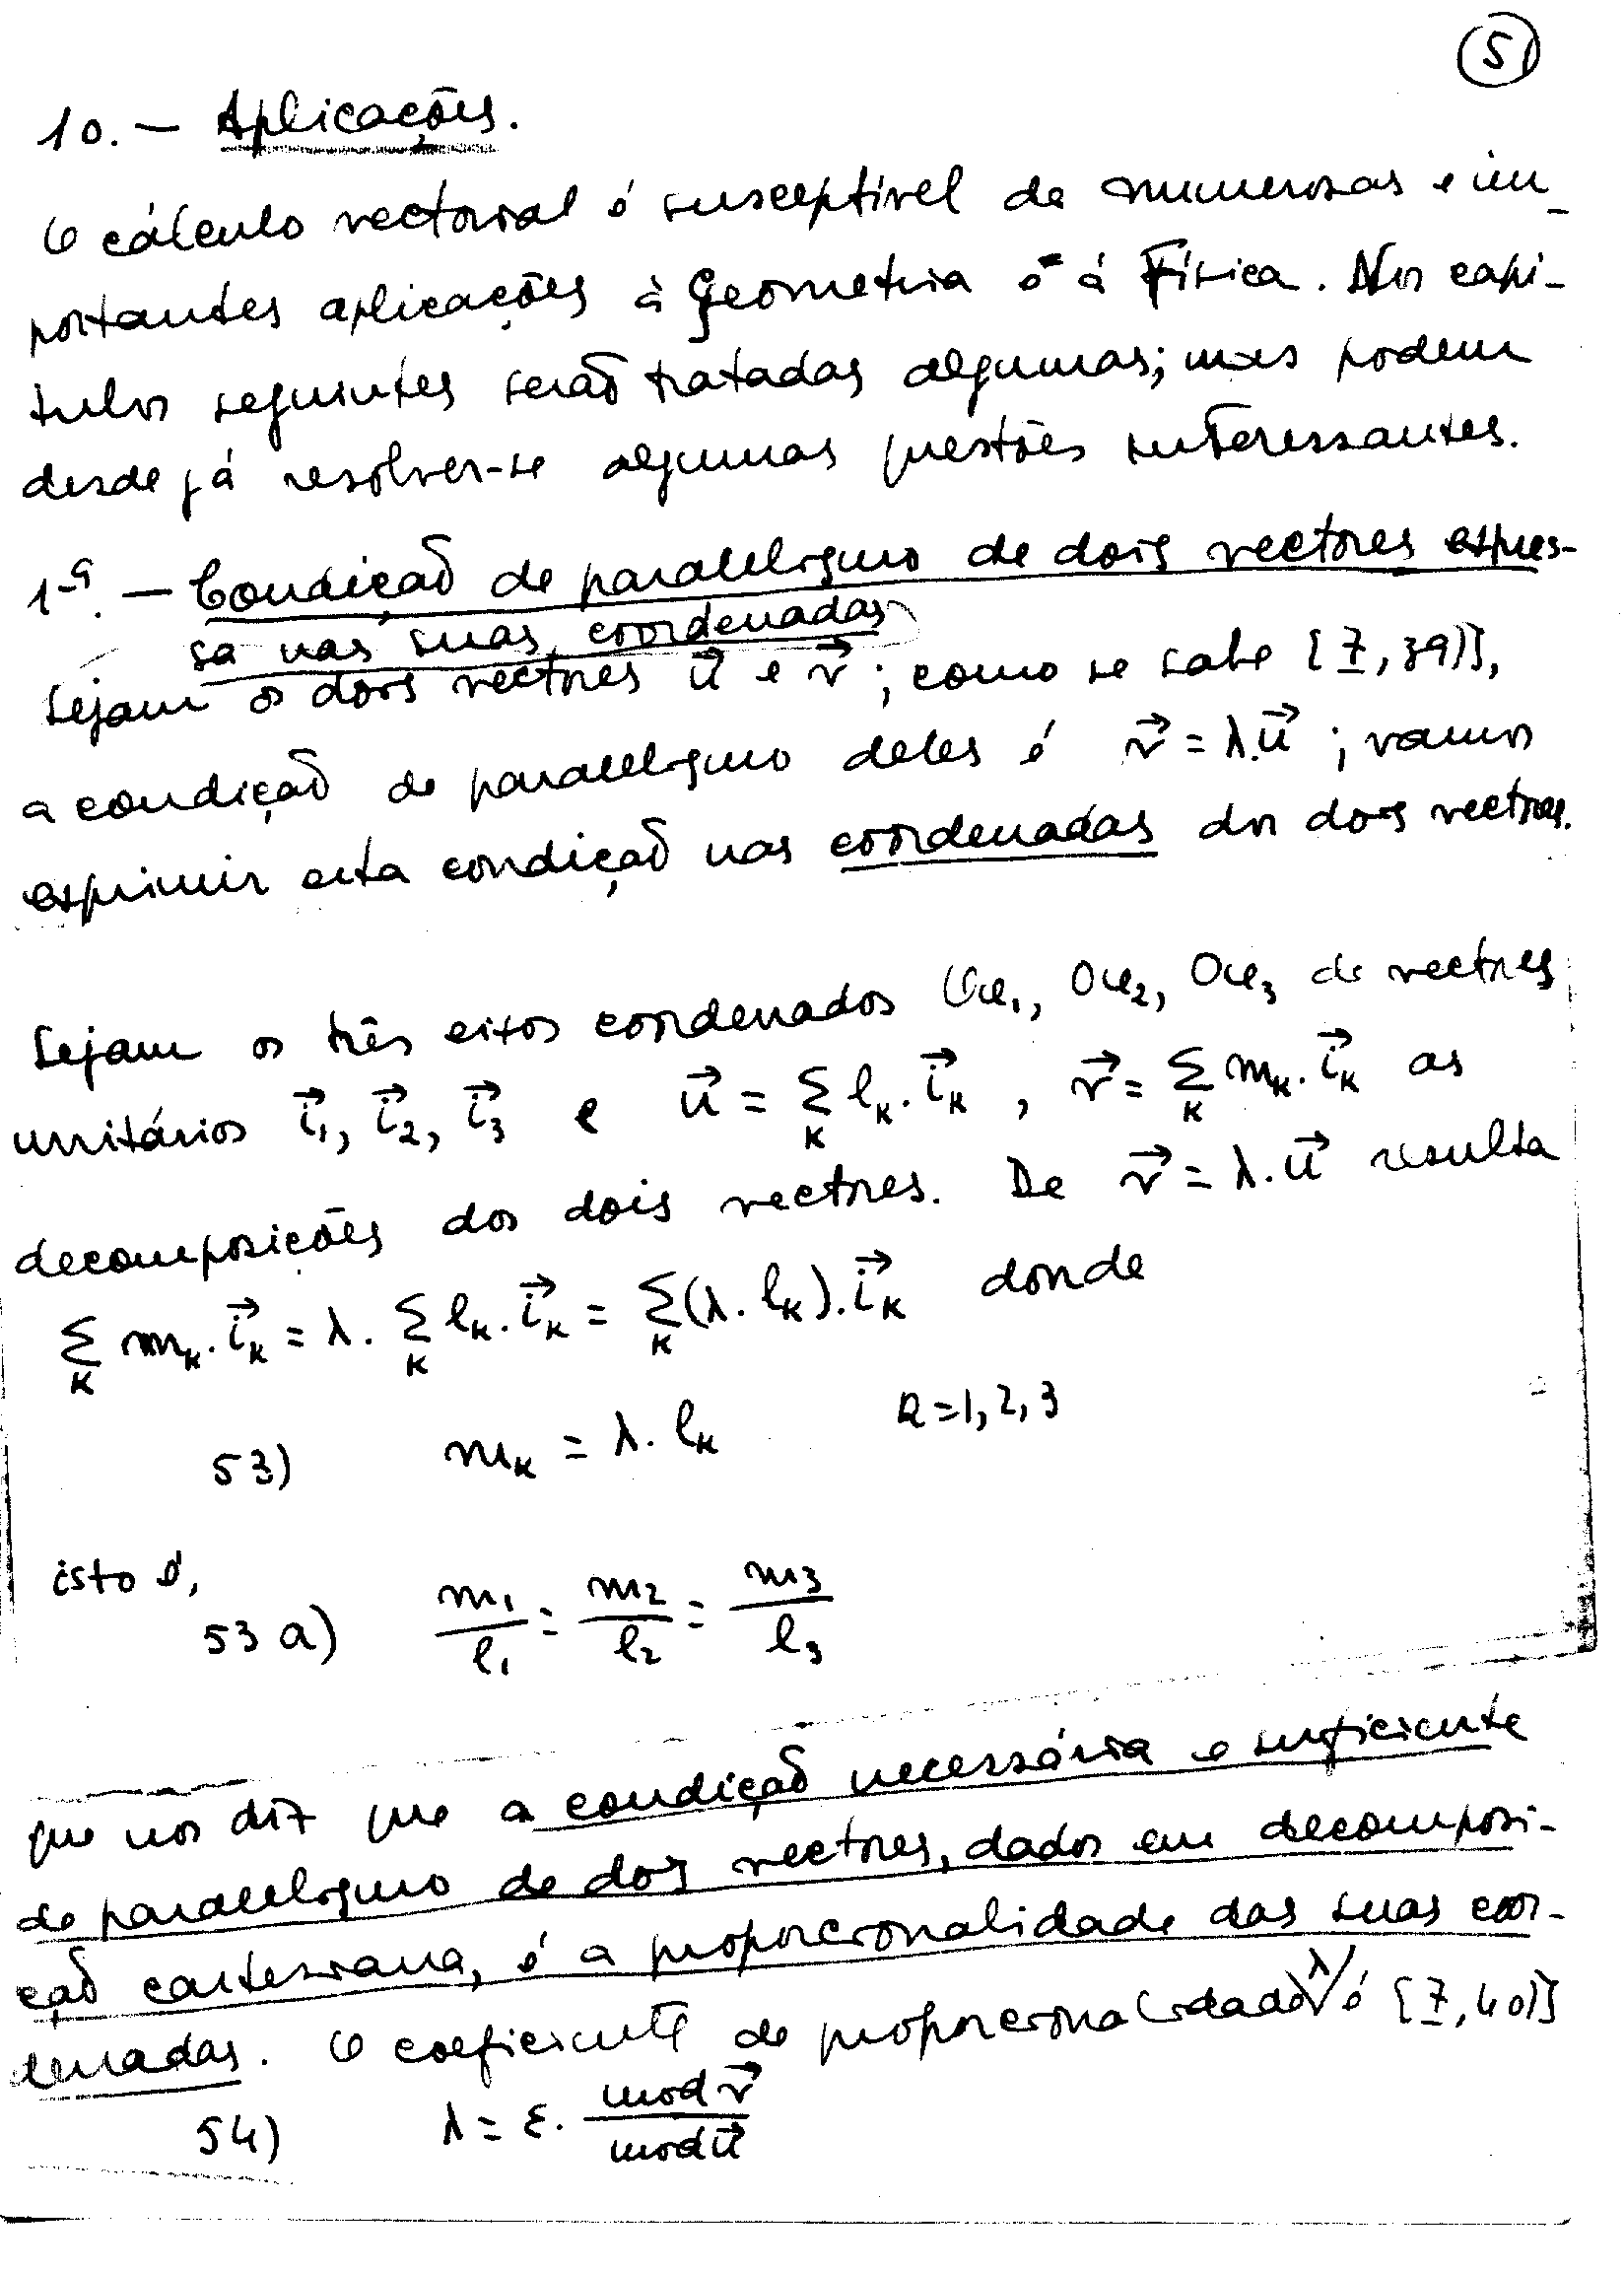 51
10. — Aplicações.
O cálculo vectorial é susceptível de numerosas e im-
portantes aplicações à Geometria e à Física. Nos capí-
tulos seguintes serão tratadas algumas; mas podem
desde já resolver-se algumas questões interessantes.
1ª. — Condição de paralelismo de dois vectores expres-
sa nas suas coordenadas
Sejam os dois vectores u⃗ e v⃗ ; como se sabe [7, 39)],
a condição de paralelismo deles é v⃗ = λ.u⃗ ; vamos
exprimir esta condição nas coordenadas dos dois vectores.
Sejam os três eixos coordenados Ox₁, Ox₂, Ox₃ de vectores
unitários i⃗₁, i⃗₂, i⃗₃ e u⃗ = Σₖ lₖ. i⃗ₖ , v⃗ = Σₖ mₖ. i⃗ₖ as
decomposições dos dois vectores. De v⃗ = λ. u⃗ resulta
Σₖ mₖ. i⃗ₖ = λ. Σₖ lₖ. i⃗ₖ = Σₖ (λ. lₖ). i⃗ₖ donde
53) mₖ = λ. lₖ k=1, 2, 3
isto é,
53 a) m₁/l₁ = m₂/l₂ = m₃/l₃
que nos diz que a condição necessária e suficiente
de paralelismo de dois vectores, dados em decomposi-
ção cartesiana, é a proporcionalidade das suas coor-
denadas. O coeficiente de proporcionalidade λ é [7, 40)]
54) λ = ε. mod v⃗ / mod u⃗